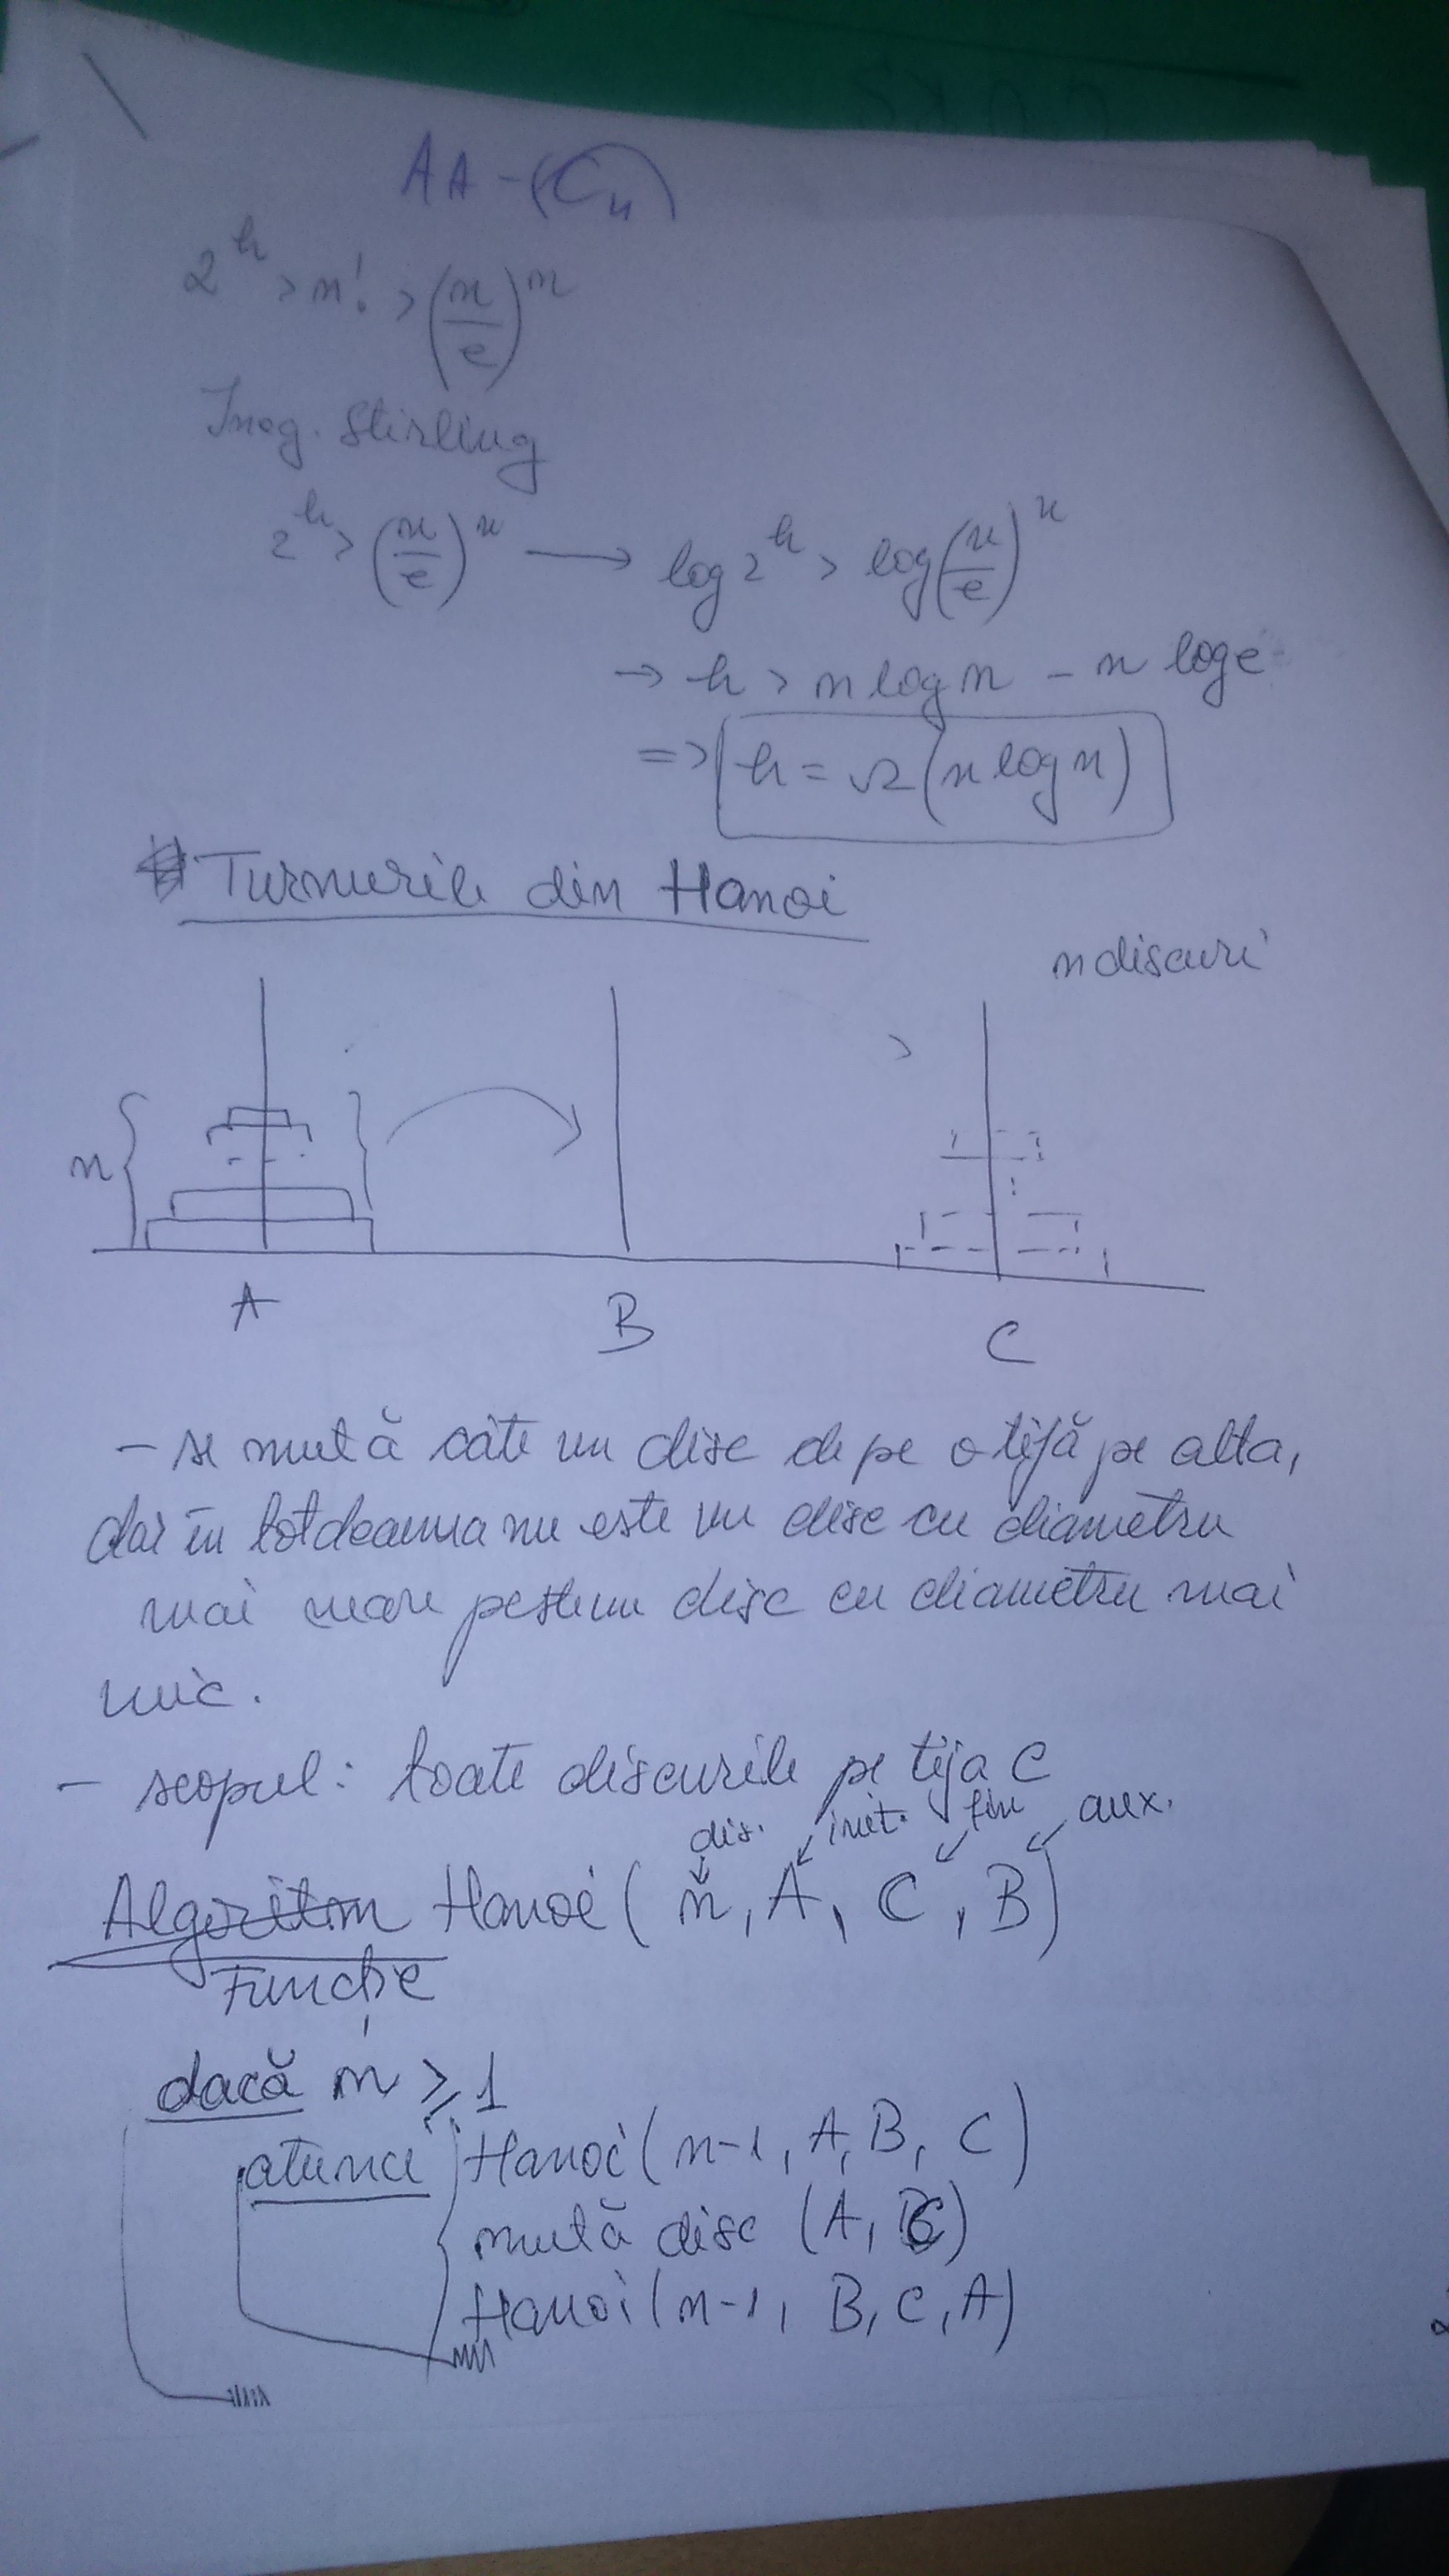 AA - (C4)
2^h > n! > (n/e)^n
Ineg. Stirling
2^h > (n/e)^n → log 2^h > log (n/e)^n
→ h > n log n - n log e
=> h = Ω (n log n)
Turnurile din Hanoi
n discuri
n
A B C
- se mută câte un disc de pe o tijă pe alta,
dar în totdeauna nu este un disc cu diametru
mai mare peste un disc cu diametru mai
mic.
- scopul: toate discurile pe tija C
dis. init. fin aux.
Algoritm Hanoi (n, A, C, B)
Funcție
dacă n ≥ 1
atunci Hanoi (n-1, A, B, C)
mută disc (A, C)
Hanoi (n-1, B, C, A)